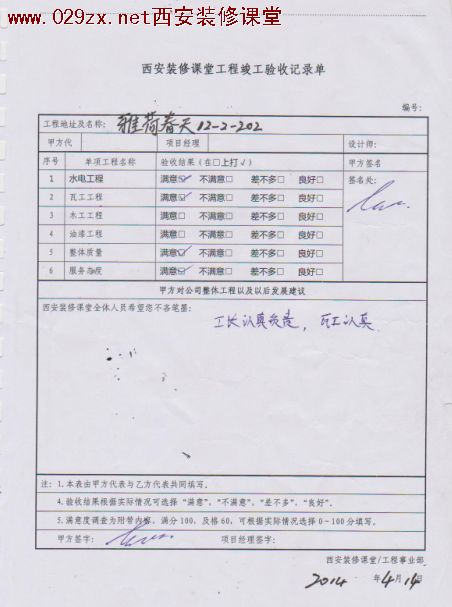 www.029zx.net西安装修课堂
西安装修课堂工程竣工验收记录单
编号：
工程地址及名称： 雅荷春天12-2-202
甲方代 项目经理 设计师：
序号 单项工程名称 验收结果（在□上打√） 甲方签名
1 水电工程 满意☑ 不满意□ 差不多□ 良好□ 签名处：
2 瓦工工程 满意☑ 不满意□ 差不多□ 良好□
3 木工工程 满意□ 不满意□ 差不多□ 良好□
4 油漆工程 满意□ 不满意□ 差不多□ 良好□
5 整体质量 满意☑ 不满意□ 差不多□ 良好□
6 服务态度 满意☑ 不满意□ 差不多□ 良好□
甲方对公司整体工程以及以后发展建议
西安装修课堂全体人员希望您不吝笔墨：
工长认真负责，瓦工认真
注：1.本表由甲方代表与乙方代表共同填写。
4.验收结果根据实际情况可选择“满意”，“不满意”，“差不多”，“良好”。
5.满意度调查为附带内容，满分100，及格60，可根据实际情况选择0-100分填写。
甲方签字： 项目经理签字：
西安装修课堂/工程事业部
2014 年4月14日